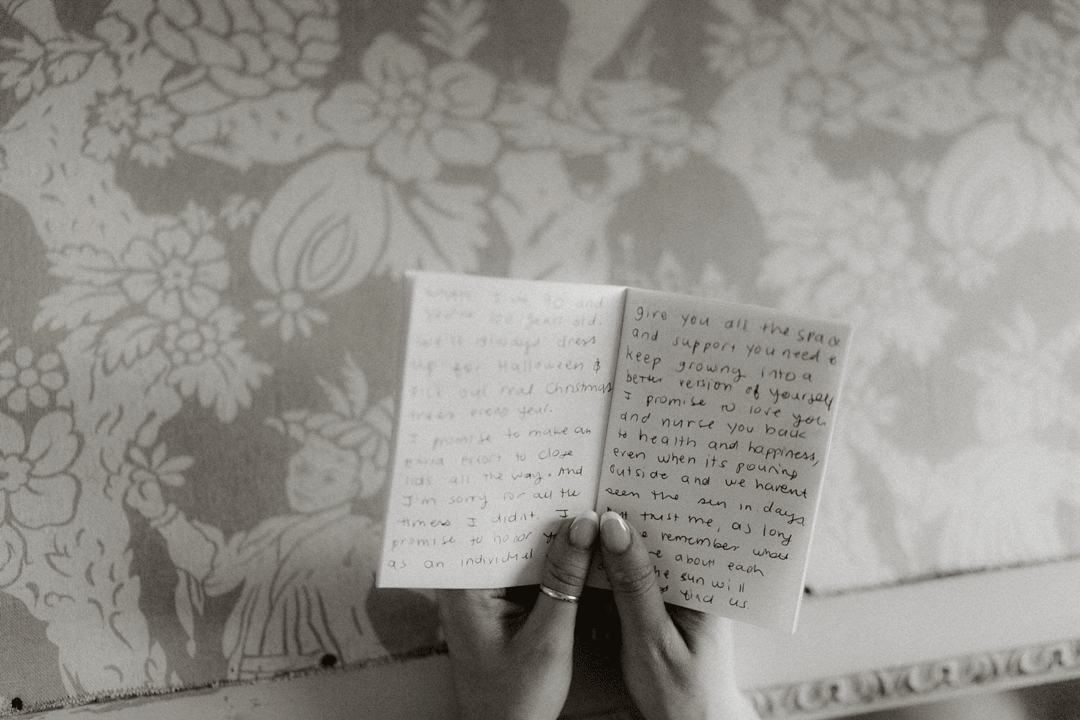 when I'm 90 and
you're 100 years old.
we'll always dress
up for Halloween &
pick out real Christmas
trees every year.
I promise to make an
extra effort to close
lids all the way. And
I'm sorry for all the
times I didn't. I
promise to honor
as an individual
give you all the space
and support you need to
keep growing into a
better version of yourself
I promise to love you
and nurse you back
to health and happiness,
even when its pouring
outside and we havent
seen the sun in days.
But trust me, as long
remember what
about each
the sun will
find us.